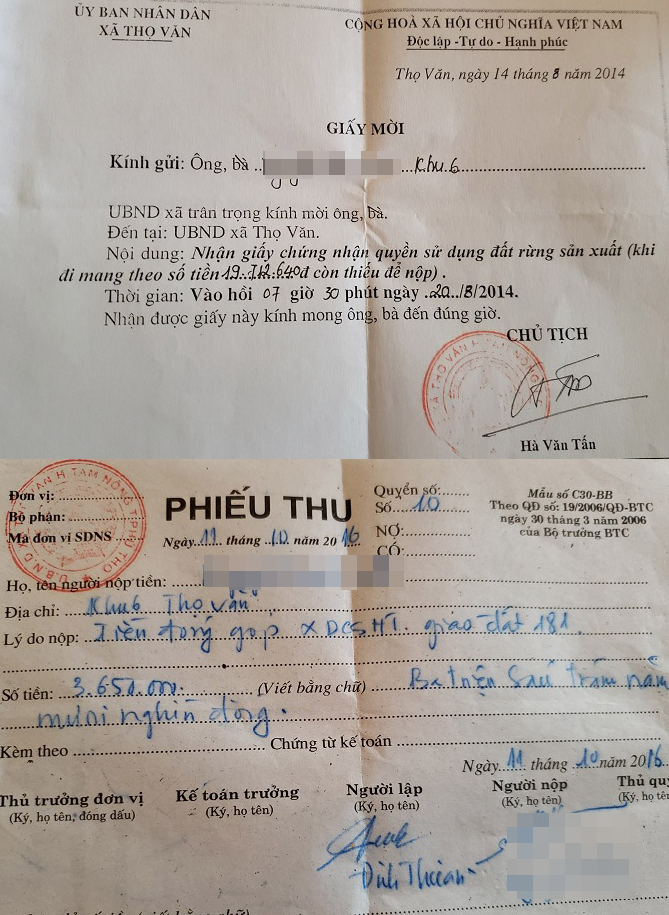 ỦY BAN NHÂN DÂN
XÃ THỌ VĂN
CỘNG HOÀ XÃ HỘI CHỦ NGHĨA VIỆT NAM
Độc lập -Tự do - Hạnh phúc
Thọ Văn, ngày 14 tháng 8 năm 2014
GIẤY MỜI
Kính gửi: Ông, bà ... Khu 6
UBND xã trân trọng kính mời ông, bà.
Đến tại: UBND xã Thọ Văn.
Nội dung: Nhận giấy chứng nhận quyền sử dụng đất rừng sản xuất (khi
đi mang theo số tiền 19.712.640đ còn thiếu để nộp) .
Thời gian: Vào hồi 07 giờ 30 phút ngày 20 /8/2014.
Nhận được giấy này kính mong ông, bà đến đúng giờ.
CHỦ TỊCH
Hà Văn Tấn
Đơn vị:
Bộ phận:
Mã đơn vị SDNS
PHIẾU THU
Ngày 11 tháng 10 năm 2016
Quyển số:
Số 10
NỢ:
CÓ:
Mẫu số C30-BB
Theo QĐ số: 19/2006/QĐ-BTC
ngày 30 tháng 3 năm 2006
của Bộ trưởng BTC
Họ, tên người nộp tiền:
Địa chỉ: Khu 6 Thọ Văn
Lý do nộp: Tiền đóng góp XDCSHT. giao đất 181
Số tiền: 3.650.000. (Viết bằng chữ) Ba triệu sáu trăm năm
mươi nghìn đồng.
Kèm theo Chứng từ kế toán
Ngày 11 tháng 10 năm 2016
Thủ trưởng đơn vị
(Ký, họ tên, đóng dấu)
Kế toán trưởng
(Ký, họ tên)
Người lập
(Ký, họ tên)
Người nộp
(Ký, họ tên)
Thủ quỹ
(Ký, họ tên)